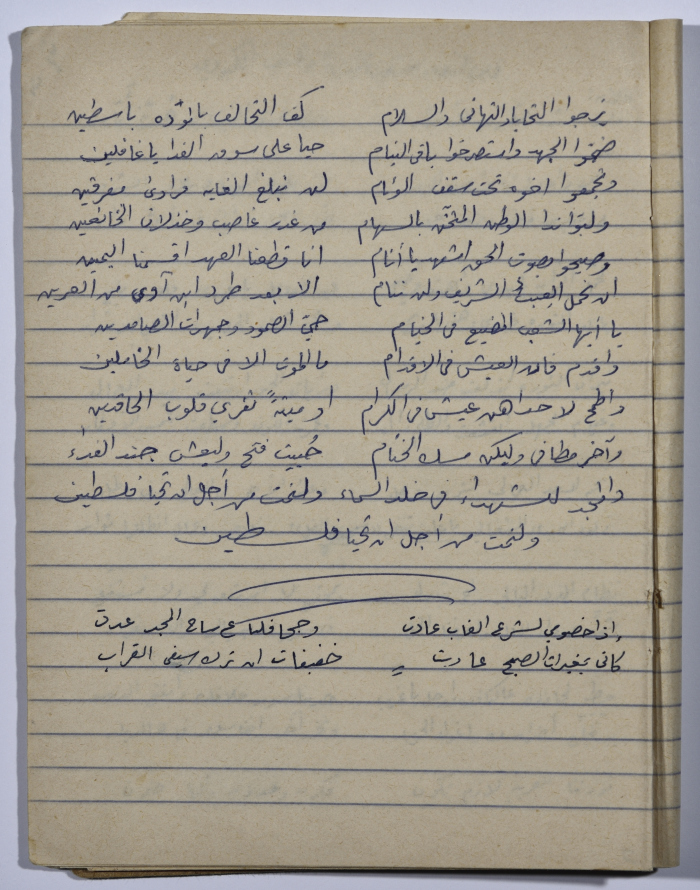 يزجوا التحايا والتهاني والسلام كف التحالف بالمودّه باسطين
ضمّوا الجهد واستصرخوا باقي النيام هيا على سوح الفدا يا غافلين
وتجمعوا اخوه تحت سقف الوئام لن نبلغ الغايه فرادى مفرقين
ولبّوا ندا الوطن المثخّن بالسهام من غدر غاصب وخذلان الخانعين
وصيحوا بصوت الحق اشهد يا أنام انا قطعنا العهد اقسمنا اليمين
ان نحمل العبء الشريف ولن ننام الا بعد طرد ابن آوى من العرين
يا أيها الشعب المضيع في الخيام حيّ الصمود وجبهات الصامدين
واقدم فان العيش في الاقدام ما الموت الا في حياة الخاملين
واطمح لاحداهن عيش في الكرام او ميتةً تفري قلوب الحاقدين
وآخر مطافي وليكن مسك الختام حُييت فتح وليعش جند الفداء
والمجد للشهداء في خلد السماء ولنمت من أجل ان تحيا فلسطين
ولنمت من أجل ان تحيا فلسطين
إذا خصومي لشرع الغاب عادت وجحافلنا ع ساح المجد عدت
كاني بمغيرات الصبح عادت خفيفات ان ترك سيفي القراب